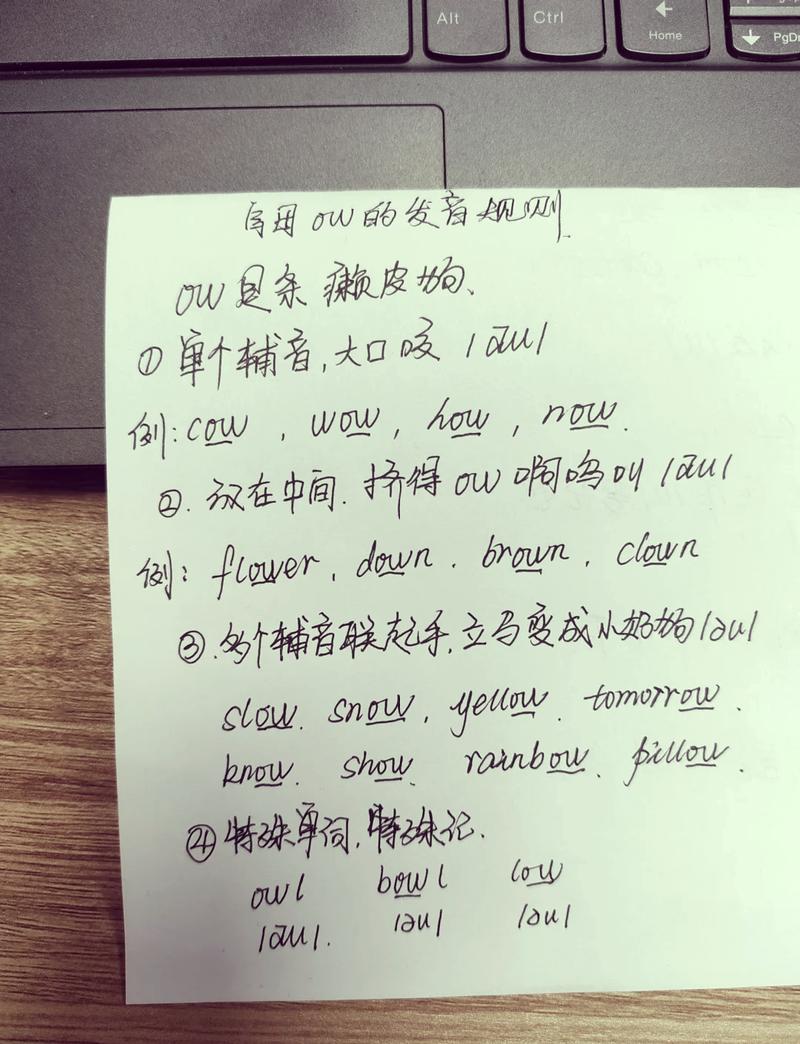 Alt Ctrl Home PgDn
字母ow的发音规则.
ow是条癞皮狗、
① 单个辅音,大口咬 /au/
例:cow , wow , how , now .
②. 放在中间. 挤得ow啊呜叫 /au/
例: flower , down . brown . clown
③.多个辅音联起手,立马变成小奶狗/əu/
slow. snow , yellow . tomorrow .
know. show. rainbow . pillow .
④ 特殊单词,特殊记.
owl bowl low
/au/. /əu/ /əu/